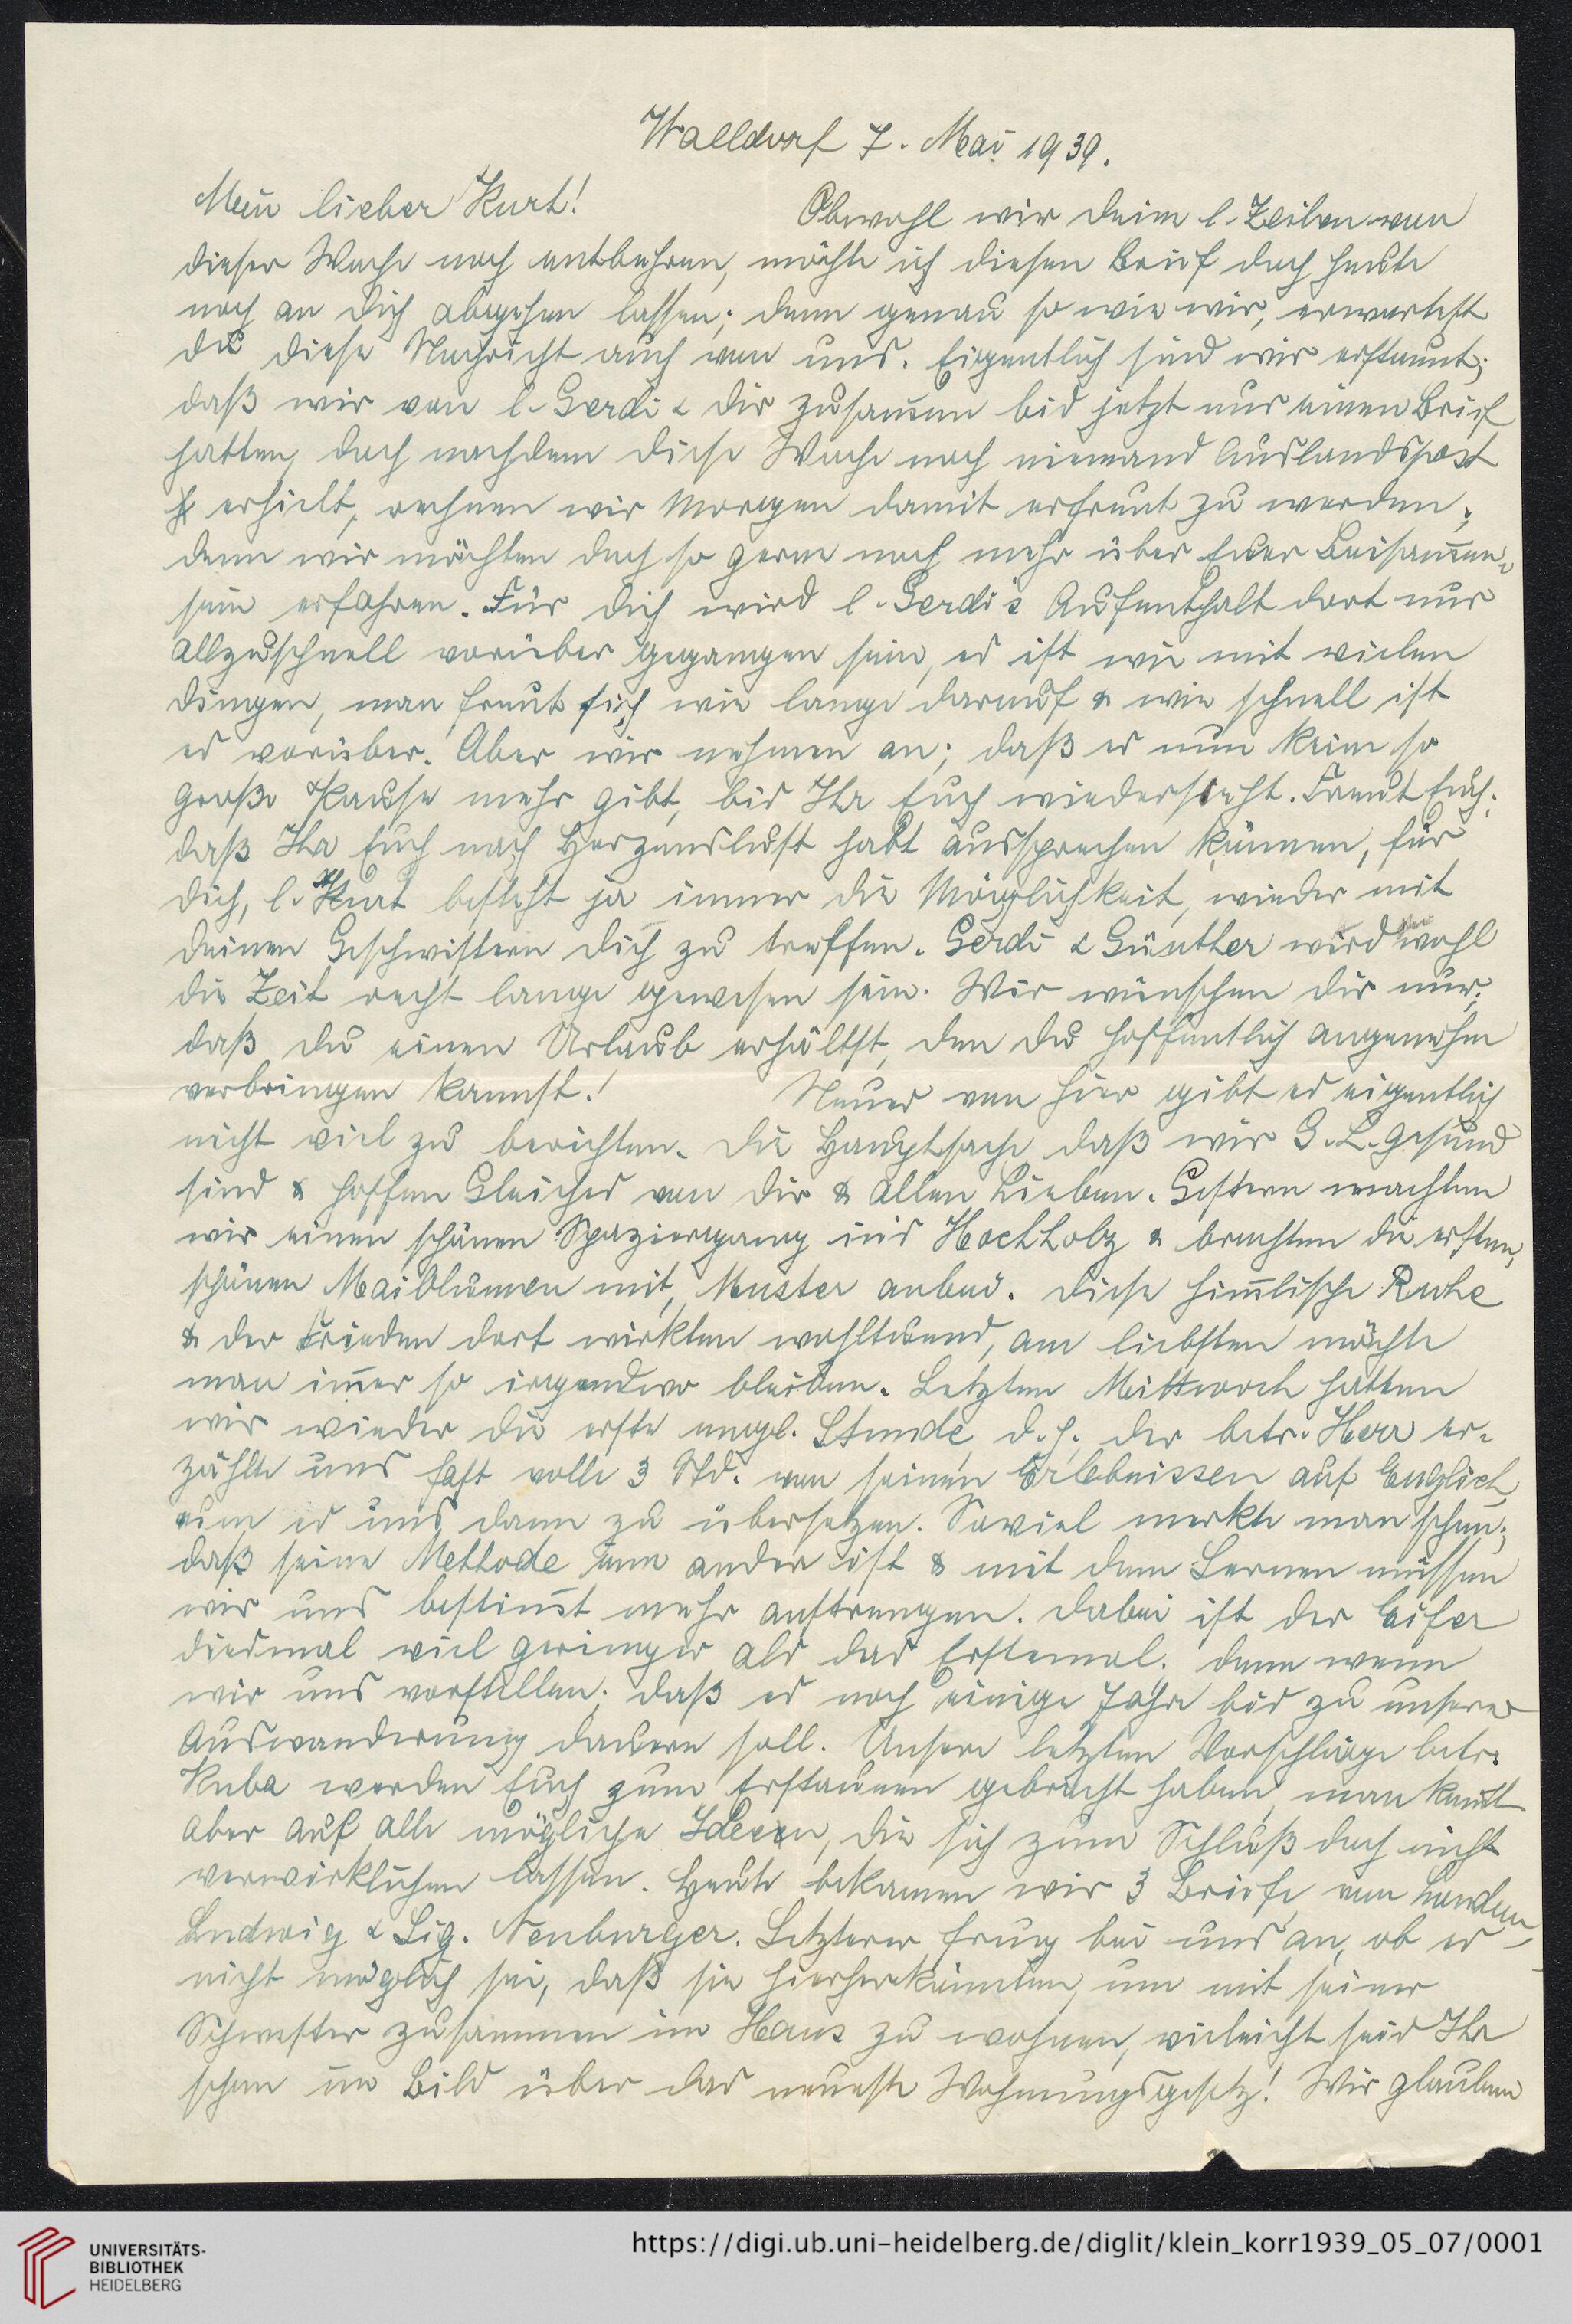 Walldorf 7. Mai 1939.
Mein lieber Kurt! Obwohl wir deine l. Zeilen von
dieser Woche noch entbehren, möchte ich diesen Brief doch heute
noch an dich abgehen lassen; denn genau so wie wir, erwartest
du diese Nachricht auch von uns. Eigentlich sind wir erstaunt;
daß wir von l. Gerdi & dir zusam̄en bis jetzt nur einen Brief
hatten, doch nachdem diese Woche noch niemand Auslandspost
erhielt, rechnen wir Morgen damit erfreut zu werden;
denn wir möchten doch so gerne noch mehr über Euer Beisam̄en-
sein erfahren. Für dich wird l. Gerdi's Aufenthalt dort nur
allzuschnell vorüber gegangen sein, es ist wie mit vielen
Dingen, man freut sich wie lange darauf & wie schnell ist
es vorüber. Aber wir nehmen an; daß es nun keine so
große Pause mehr gibt, bis Ihr Euch wiederseht. Freut Euch;
daß Ihr Euch nach Herzenslust habt aussprechen können, für
dich, l. Kurt besteht ja immer die Möglichkeit, wieder mit
deinen Geschwistern dich zu treffen. Gerdi & Günther wird wohl
die Zeit recht lange gewesen sein. Wir wünschen dir nur;
daß du einen Urlaub erhältst, den du hoffentlich angenehm
verbringen kannst! Neues von hier gibt es eigentlich
nicht viel zu berichten. Die Hauptsache daß wir G. L. gesund
sind & hoffen Gleiches von dir & allen Lieben. Gestern machten
wir einen schönen Spaziergang ins Hochholz & brachten die ersten,
schönen Maiblumen mit, Muster anbei. Diese him̄lische Ruhe
& der Frieden dort wirkten wohltuend, am liebsten möchte
man im̄er so irgendwo bleiben. Letzten Mittwoch hatten
wir wieder die erste engl. Stunde, d. h. der betr. Herr er-
zählte uns fast volle 3 Std. von seinen Erlebnissen auf Englisch,
um es uns dann zu übersetzen. Soviel merkte man schon;
daß seine Methode eine andere ist & mit dem Lernen müssen
wir uns bestim̄t mehr anstrengen. Dabei ist der Eifer
diesmal viel geringer als das Erstemal. denn wenn
wir uns vorstellen; daß es noch einige Jahre bis zu unserer
Auswanderung dauern soll. Unsere letzten Vorschläge betr.
Kuba werden Euch zum Erstaunen gebracht haben, man kom̄t
aber auf alle mögliche Ideen, die sich zum Schluß doch nicht
verwirklichen lassen. Heute bekamen wir 3 Briefe von London,
Ludwig & Sig. Neuburger. Letzterer frug bei uns an, ob es
nicht möglich sei, daß sie hierherkämen, um mit seiner
Schwester zusammen im Haus zu wohnen, vieleicht seid Ihr
schon im Bild über das neueste Wohnungsgesetz! Wir glauben
UNIVERSITÄTS-
BIBLIOTHEK
HEIDELBERG
https://digi.ub.uni-heidelberg.de/diglit/klein_korr1939_05_07/0001